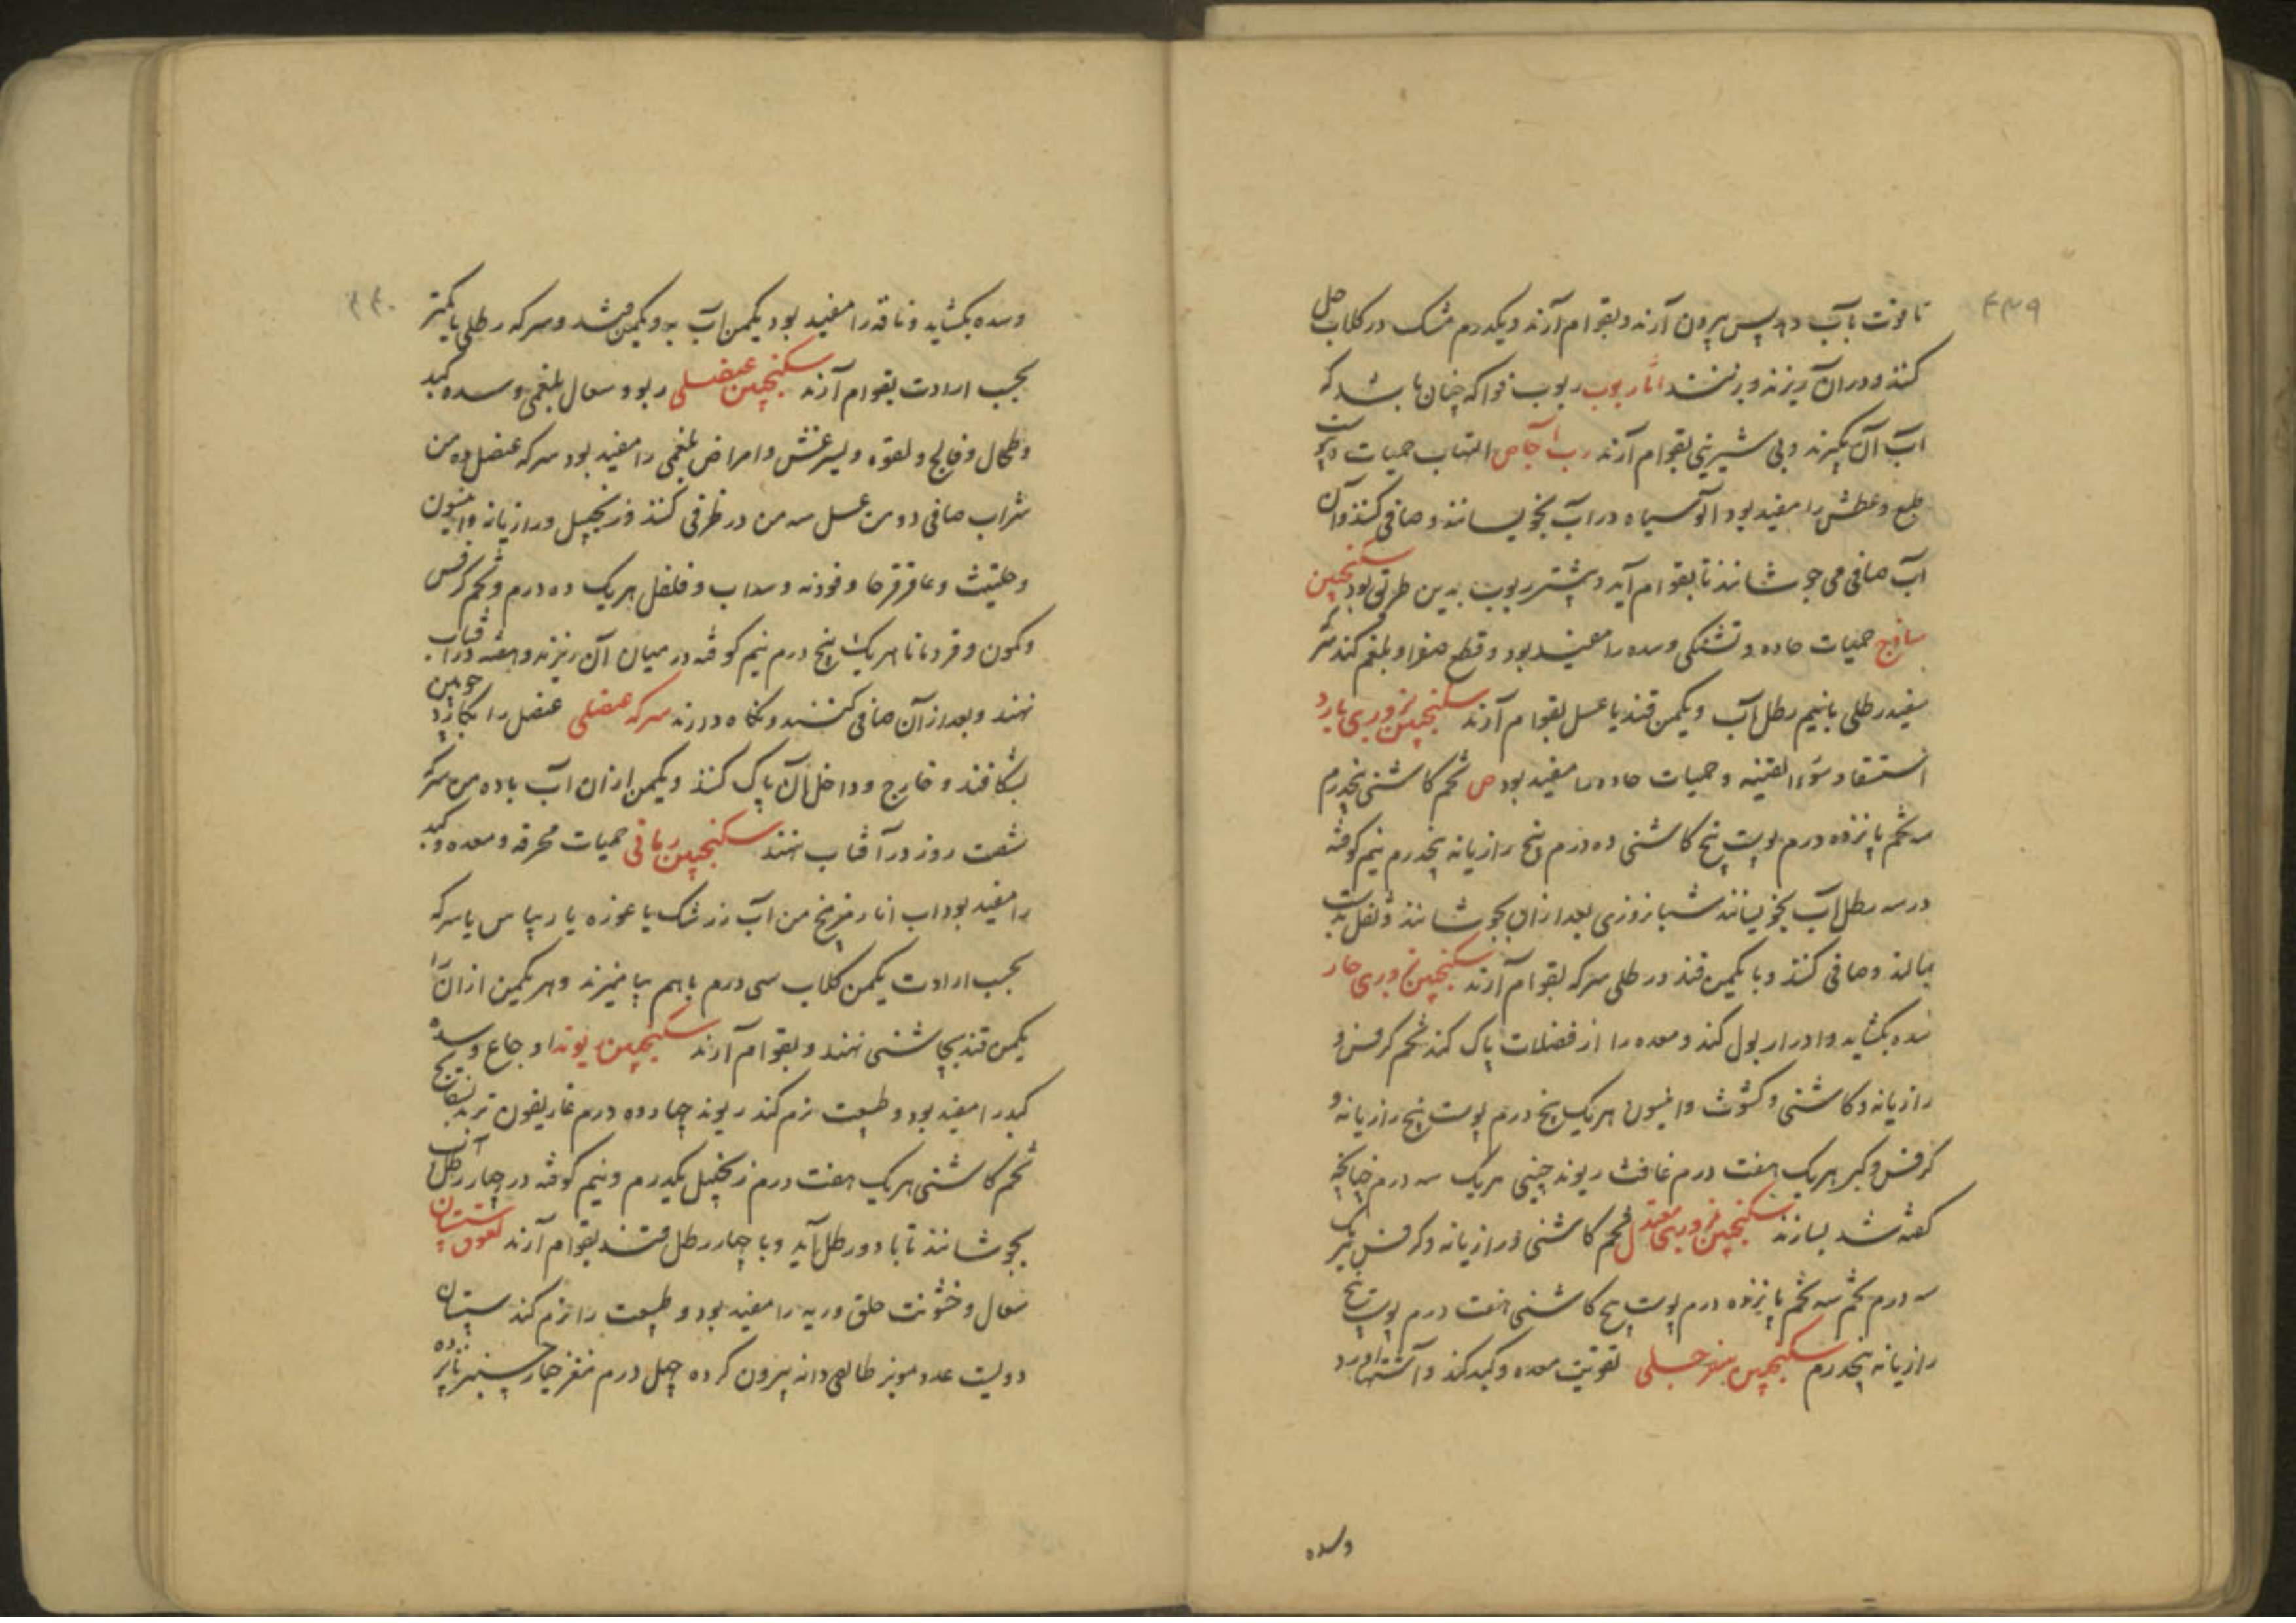 ۴۳۹
تا قوت بآب دهد پس بیرون آرند و بقوام آرند و یکدرم مشک در گلاب حل
کنند و در آن ریزند و بر نشند اما ربوب ربوب فواکه چنان باشد که
آب آن بگیرند و بی شیرینی بقوام آرند رب آجاص التهاب حمیات و یبوست
طبع و عطش را مفید بود آلو سیاه در آب بخویسانند و صافی کنند و آن
آب صافی می جوشانند تا بقوام آید و بیشتر ربوب بدین طریق بود سکنجبین
ساذج حمیات حاده و تشنگی و سده را مفید بود و قطع صفرا و بلغم کند سرکه
سفید رطلی بانیم رطل آب و یکمن قند یا عسل بقوام آرند سکنجبین بزوری بارد
استسقا و سوء القنیه و حمیات حاده را مفید بود ص تخم کاشنی پنجدرم
سه تخم پانزده درم پوست بیخ کاشنی ده درم بیخ رازیانه پنجدرم نیم کوفته
در سه رطل آب بخویسانند شبانروزی بعد از آن بجوشانند و ثفل بدست
بمالند و صافی کنند و با یکمن قند و رطلی سرکه بقوام آرند سکنجبین بزوری حار
سده بگشاید و ادرار بول کند و معده را از فضلات پاک کند تخم کرفس و
رازیانه و کاشنی و کشوث و انیسون هریک پنج درم پوست بیخ رازیانه و
کرفس و کبر هریک هفت درم غافث ریوند چینی هریک سه درم چنانچه
گفته شد بسازند سکنجبین بزوری معتدل تخم کاشنی و رازیانه و کرفس هریک
سه درم تخم سه تخم پانزده درم پوست بیخ کاشنی هفت درم پوست بیخ
رازیانه پنجدرم سکنجبین سفرجلی تقویت معده و کبد کند و اشتها آورد
وسده
۴۴۰
وسده بگشاید و ناقه را مفید بود یکمن آب به و یکمن قند و سرکه رطلی یا کمتر
بحسب ارادت بقوام آرند سکنجبین عنصلی ربو و سعال بلغمی و سده کبد
و طحال و فالج و لقوه و لیثرغش و امراض بلغمی را مفید بود سرکه عنصل ده من
شراب صافی دو من عسل سه من در ظرفی کنند و زنجبیل و رازیانه و انیسون
و حلتیت و عاقرقرحا و فوذنه و سداب و فلفل هریک ده درم و تخم کرفس
و کمون و قردمانا هریک پنج درم نیم کوفته در میان آن ریزند و هفته در آفتاب
نهند و بعد از آن صافی کنند و نگاه دارند سرکه عنصلی عنصل را بکارد چوبین
بشکافند و خارج و داخل آن پاک کنند و یکمن از آن آب با ده من سرکه
شصت روز در آفتاب نهند سکنجبین رمانی حمیات محرقه و معده و کبد
را مفید بود آب انار مز پنج من آب زرشک یا غوره یا ریباس یا سرکه
بحسب ارادت یکمن گلاب سی درم باهم بیامیزند و هر یکمن از آن را
یکمن قند بچاشنی نهند و بقوام آرند سکنجبین ریوند اوجاع و سده
کبد را مفید بود و طبیعت نرم کند ریوند چهارده درم غاریقون تربد بسفایج
تخم کاشنی هریک هفت درم زنجبیل یکدرم و نیم کوفته در چهار رطل آب
بجوشانند تا با دو رطل آید و با چهار رطل قند بقوام آرند لعوق سپستان
سعال و خشونت حلق و ریه را مفید بود و طبیعت را نرم کند سپستان
دویست عدد مویز طایفی دانه بیرون کرده چهل درم مغز خیارچنبر پانزده